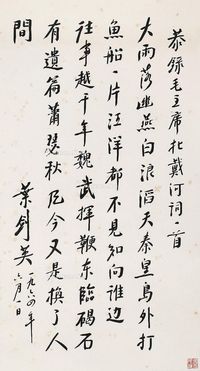 恭錄毛主席北戴河詞一首
大雨落幽燕白浪滔天秦皇島外打
魚船一片汪洋都不見知向誰邊
往事越千年魏武揮鞭東臨碣石
有遺篇蕭瑟秋風今又是換了人
間
葉劍英
一九六四年
六月一日